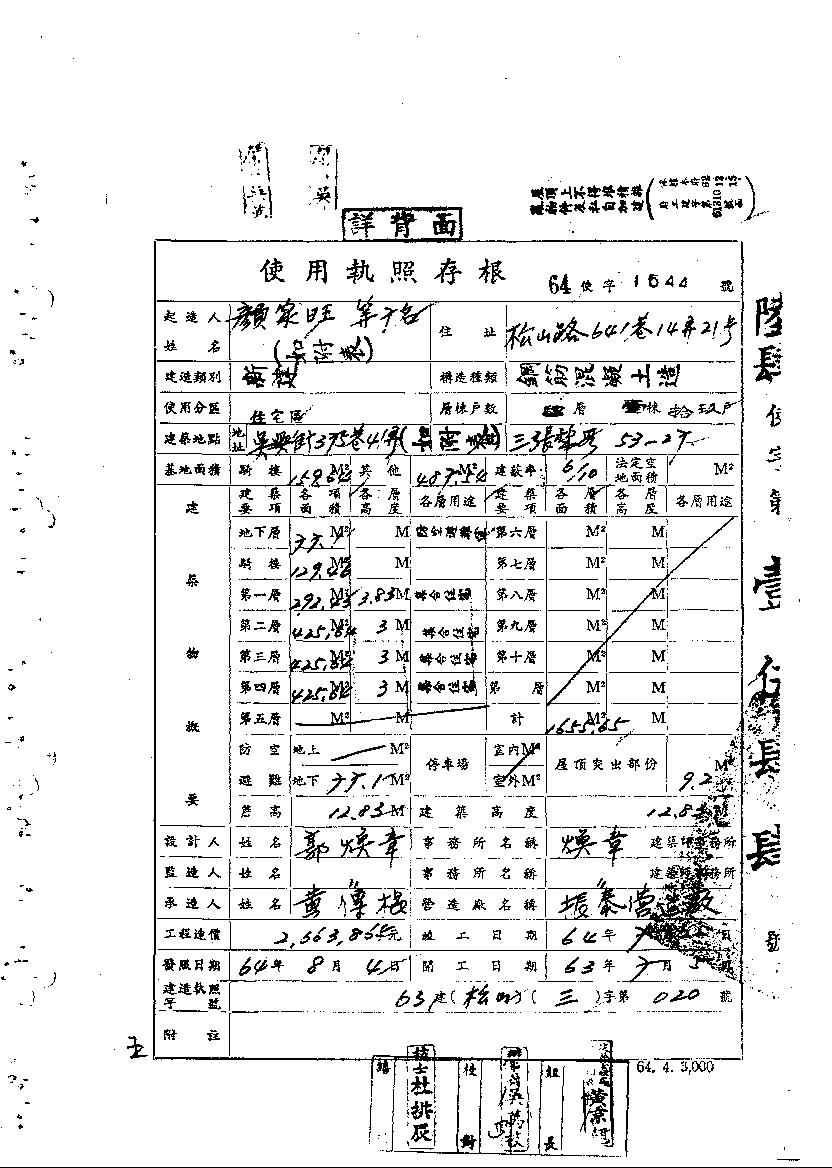 屋頂上不得堆積雜
物料及私自加建
詳背面
使用執照存根 64 使字 1544 號
起造人姓名 顏家旺 等 名 住址 松山路641巷14弄21号
建造類別 新 構造種類 鋼筋混凝土造
使用分區 住宅區 層棟戶數 肆層 壹棟 拾玖戶
建築地點 地址 吳興街375巷41弄 三張犁段 53-27
基地面積 騎樓 159.64 M² 其他 487.54 建蔽率 6/10 法定空地面積 M²
建築物概要
建築要項 各項面積 各層高度 各層用途 建築要項 各層面積 各層高度 各層用途
地下層 M² M 第六層 M² M
騎樓 129.46 M² M 第七層 M² M
第一層 292.43 M² 3.83 M 集合住宅 第八層 M² M
第二層 425.84 M² 3 M 集合住宅 第九層 M² M
第三層 425.84 M² 3 M 集合住宅 第十層 M² M
第四層 425.84 M² 3 M 集合住宅 第 層 M² M
第五層 M² M 計 1655.65 M² M
防空避難 地上 M² 停車場 室內 M² 屋頂突出部份 9.2 M²
地下 M² 室外 M²
簷高 12.83 M 建築高度 12.83
設計人 姓名 郭煥章 事務所名稱 煥章 建築師事務所
監造人 姓名 〃 事務所名稱 〃 建築師事務所
承造人 姓名 黃傳根 營造廠名稱 振泰營造廠
工程造價 2,563,864元 竣工日期 64年
發照日期 64年 8月 4日 開工日期 63年 月 5日
建造執照字號 63建(松山)(三)字第 020 號
附註
64. 4. 3,000
技士杜排辰
校對
組長
陸肆使字第壹伍肆肆號